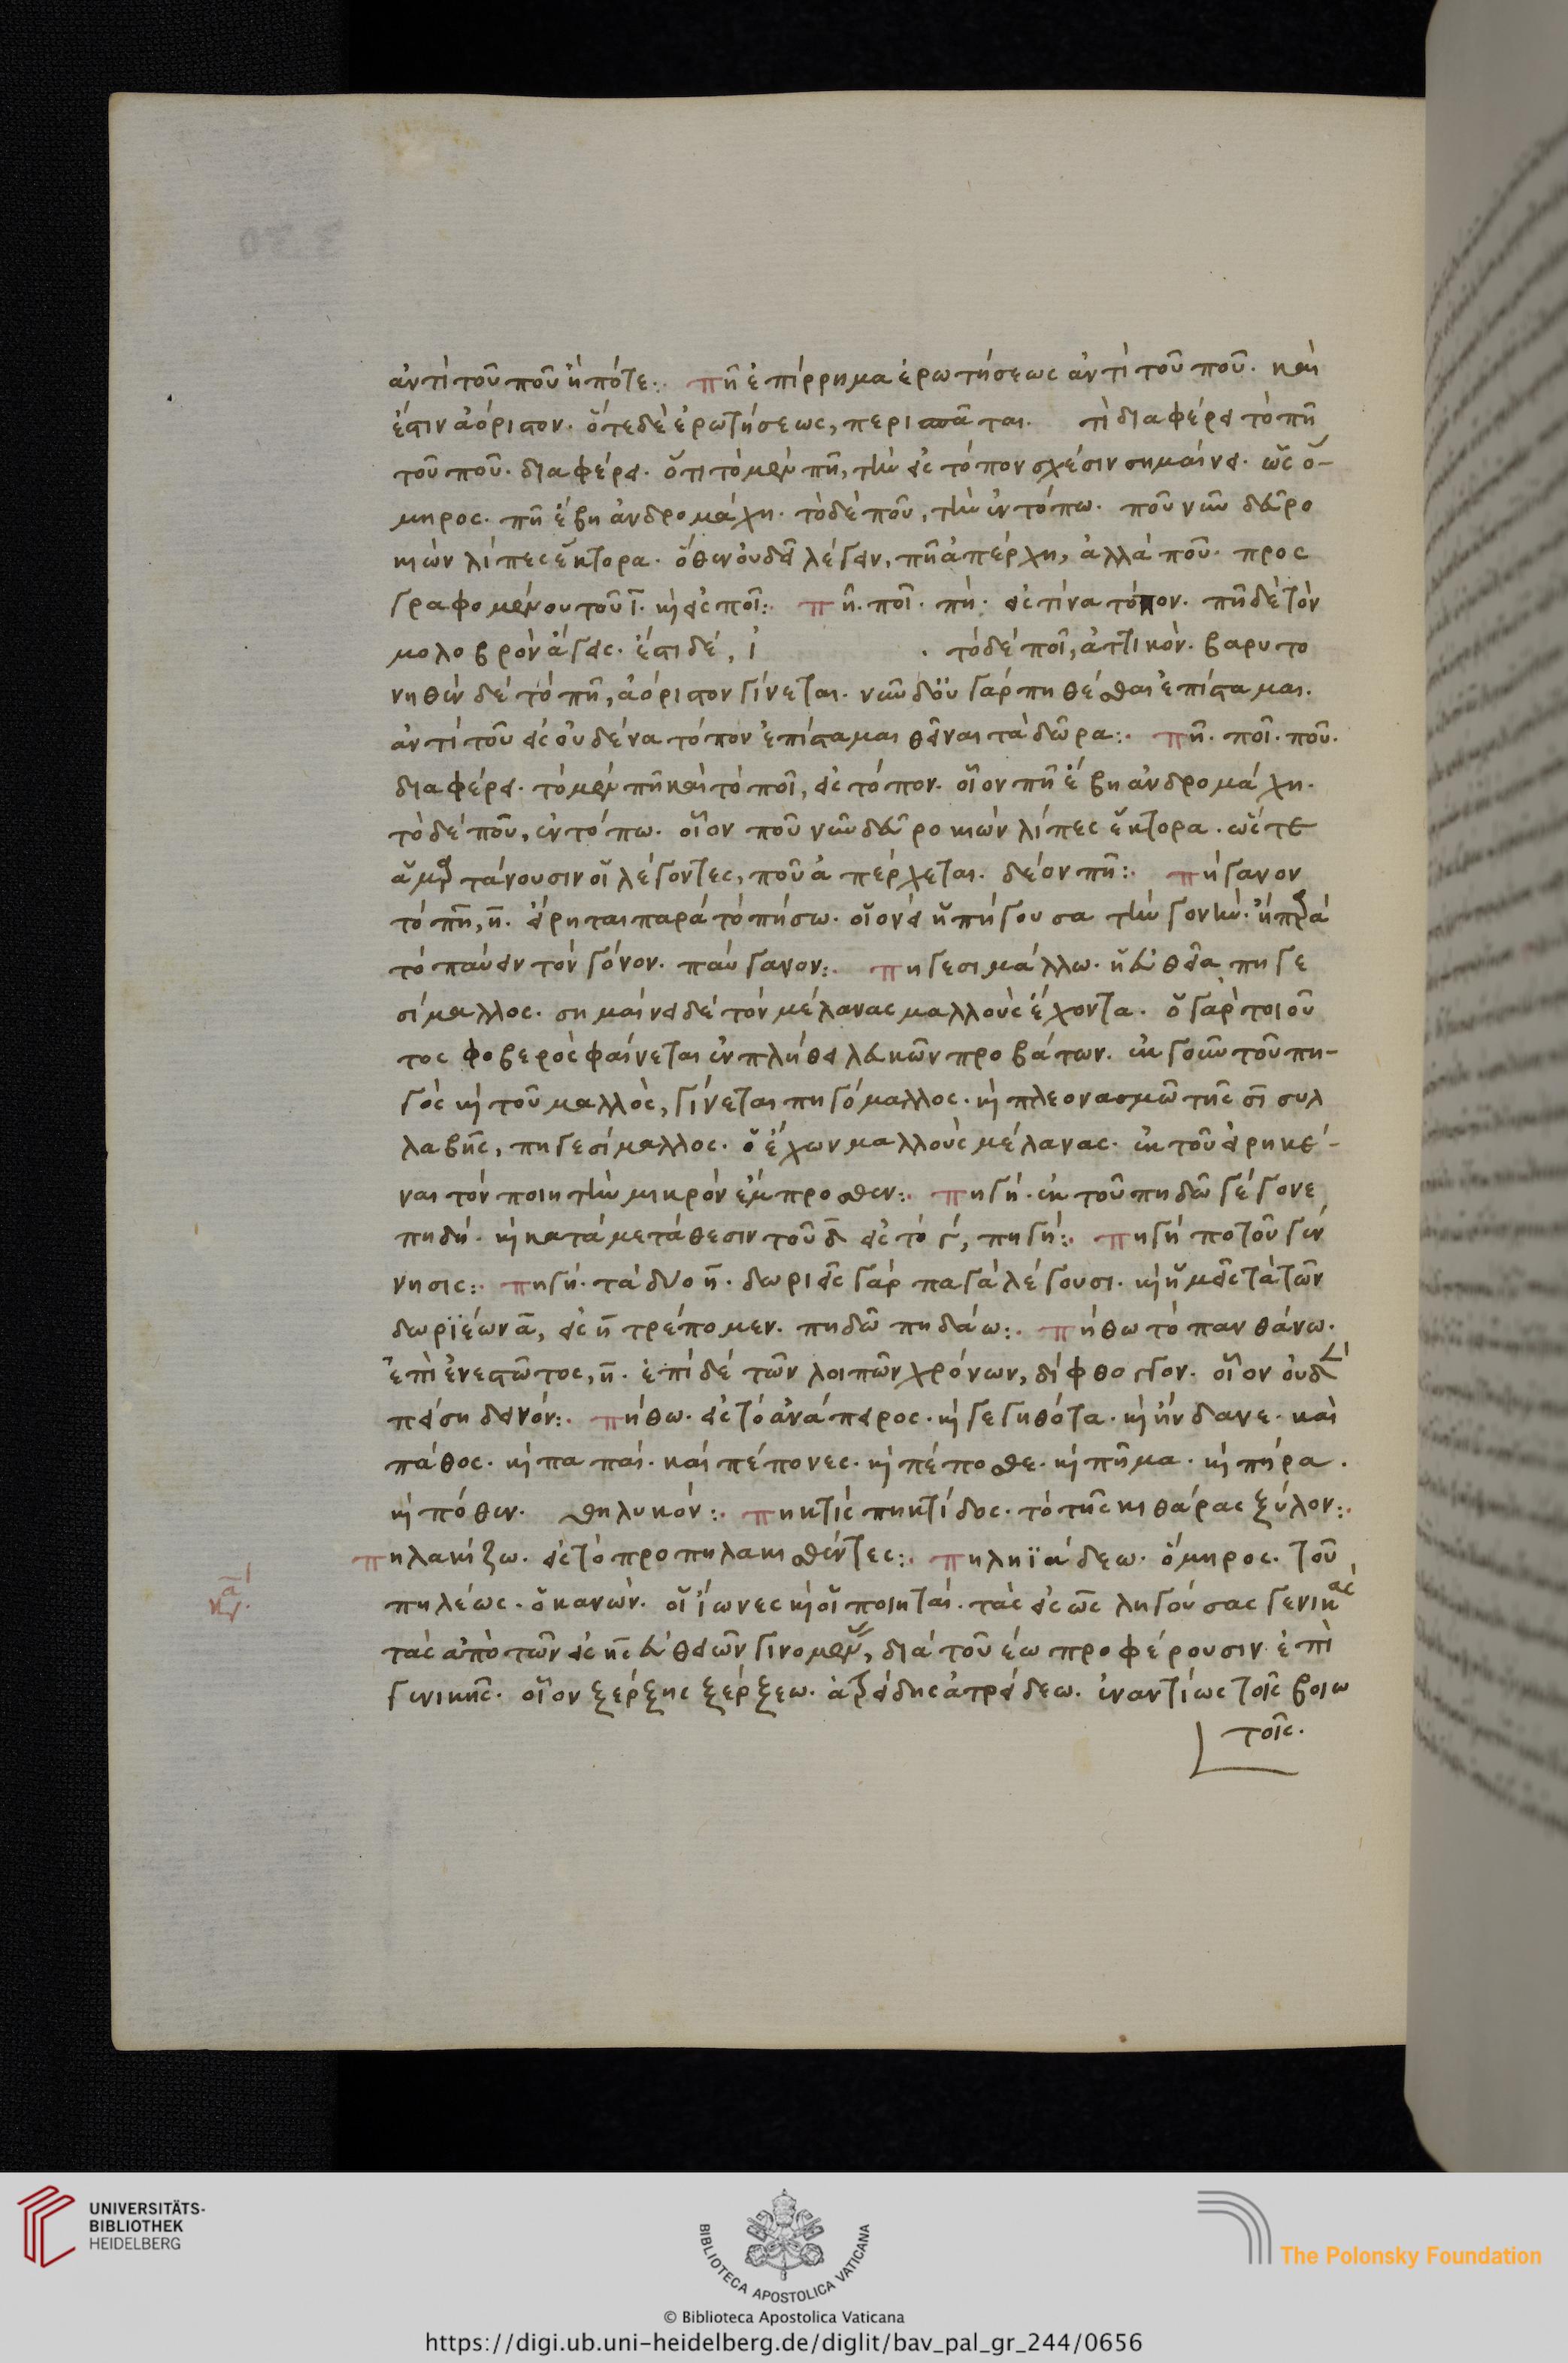 ἀντὶ τοῦ ποῦ ἢ πότε:· πῆ ἐπίρρημα ἐρωτήσεως ἀντὶ τοῦ ποῦ. καὶ
ἔστιν ἀόριστον. ὅτε δὲ ἐρωτήσεως, περισπᾶται. τί διαφέρει τὸ πῆ
τοῦ ποῦ. διαφέρει. ὅτι τὸ μὲν πῆ, τὴν εἰς τόπον σχέσιν σημαίνει. ὡς ὅ-
μηρος. πῆ ἔβη ἀνδρομάχη. τὸ δὲ ποῦ, τὴν ἐν τόπω. ποῦ νῦν δεῦρο
κιὼν λίπες ἕκτορα. ὅθεν οὐ δεῖ λέγειν, πῆ ἀπέρχη, ἀλλὰ ποῦ. προς
γραφομένου τοῦ ι. κὶ εἰς ποῖ:· πῆ. ποῖ. πή. εἰς τίνα τόπον. πῆ δὲ τὸν
μολοβρὸν ἄγεις. ἔστι δέ, ἰ . τὸ δὲ ποῖ, ἀττικόν. βαρυτο
νηθὲν δὲ τὸ πῆ, ἀόριστον γίνεται. νῦν δ' οὐ γάρ πη θέσθαι ἐπίσταμαι.
ἀντὶ τοῦ εἰς οὐδένα τόπον ἐπίσταμαι θεῖναι τὰ δῶρα:· πῆ. ποῖ. ποῦ.
διαφέρει. τὸ μὲν πῆ καὶ τὸ ποῖ, εἰς τόπον. οἷον πῆ ἔβη ἀνδρομάχη.
τὸ δὲ ποῦ, ἐν τόπω. οἷον ποῦ νῦν δεῦρο κιὼν λίπες ἕκτορα. ὥστε
ἁμαρτάνουσιν οἱ λέγοντες, ποῦ ἀπέρχεται. δέον πῆ:· πήγανον
τὸ πη, η. εἴρηται παρὰ τὸ πήσω. οἱονεὶ ἡ πήγουσα τὴν γονήν. ἢ παρὰ
τὸ παύειν τὸν γόνον. παύγανον:· πηγεσιμάλλω. ἡ εὐθεῖα πηγε
σίμαλλος. σημαίνει δὲ τὸν μέλανας μαλλοὺς ἔχοντα. ὁ γὰρ τοιοῦ
τος φοβερὸς φαίνεται ἐν πλήθει λευκῶν προβάτων. ἐκ γοῦν τοῦ πη-
γὸς κὶ τοῦ μαλλὸς, γίνεται πηγόμαλλος. κὶ πλεονασμῶ τῆς σι συλ
λαβῆς, πηγεσίμαλλος. ὁ ἔχων μαλλοὺς μέλανας. ἐκ τοῦ εἰρηκέ-
ναι τὸν ποιητὴν μικρὸν ἔμπροσθεν:· πηγή. ἐκ τοῦ πηδῶ γέγονε
πηδή. κὶ κατὰ μετάθεσιν τοῦ δ εἰς τὸ γ, πηγή:· πηγή ποτοῦ γέν
νησις:· πηγή. τὰ δύο η. δωριεῖς γὰρ παγὰ λέγουσι. κὶ ἡμεῖς τὰ τῶν
δωριέων α, εἰς η τρέπομεν. πηδῶ πηδάω:· πήθω τὸ πανθάνω.
ἐπὶ ἐνεστῶτος, η. ἐπὶ δὲ τῶν λοιπῶν χρόνων, δίφθογγον. οἷον οὐδὲ
πείση δεινόν:· πήθω. εἰς τὸ ἀνάπειρος. κὶ γεγηθότα. κὶ ἥνδανε. καὶ
πάθος. κὶ παπαί. καὶ πέπονες. κὶ πέποσθε. κὶ πῆμα. κὶ πήρα.
κὶ πόθεν. θηλυκόν:· πηκτὶς πηκτίδος. τὸ τῆς κιθάρας ξύλον:·
πηλακίζω. εἰς τὸ προπηλακισθέντες:· πηληϊάδεω. ὅμηρος. τοῦ
πηλέως. ὁ κανών. οἱ ἴωνες κὶ οἱ ποιηταί. τὰς εἰς ως ληγούσας γενικὰς
τὰς ἀπὸ τῶν εἰς ης εὐθειῶν γινομένας, διὰ τοῦ εω προφέρουσιν ἐπὶ
γενικῆς. οἷον ξέρξης ξέρξεω. ἀτρείδης ἀτρείδεω. ἐναντίως τοῖς βοιω
τοῖς.
UNIVERSITÄTS-
BIBLIOTHEK
HEIDELBERG
BIBLIOTECA APOSTOLICA VATICANA
The Polonsky Foundation
© Biblioteca Apostolica Vaticana
https://digi.ub.uni-heidelberg.de/diglit/bav_pal_gr_244/0656